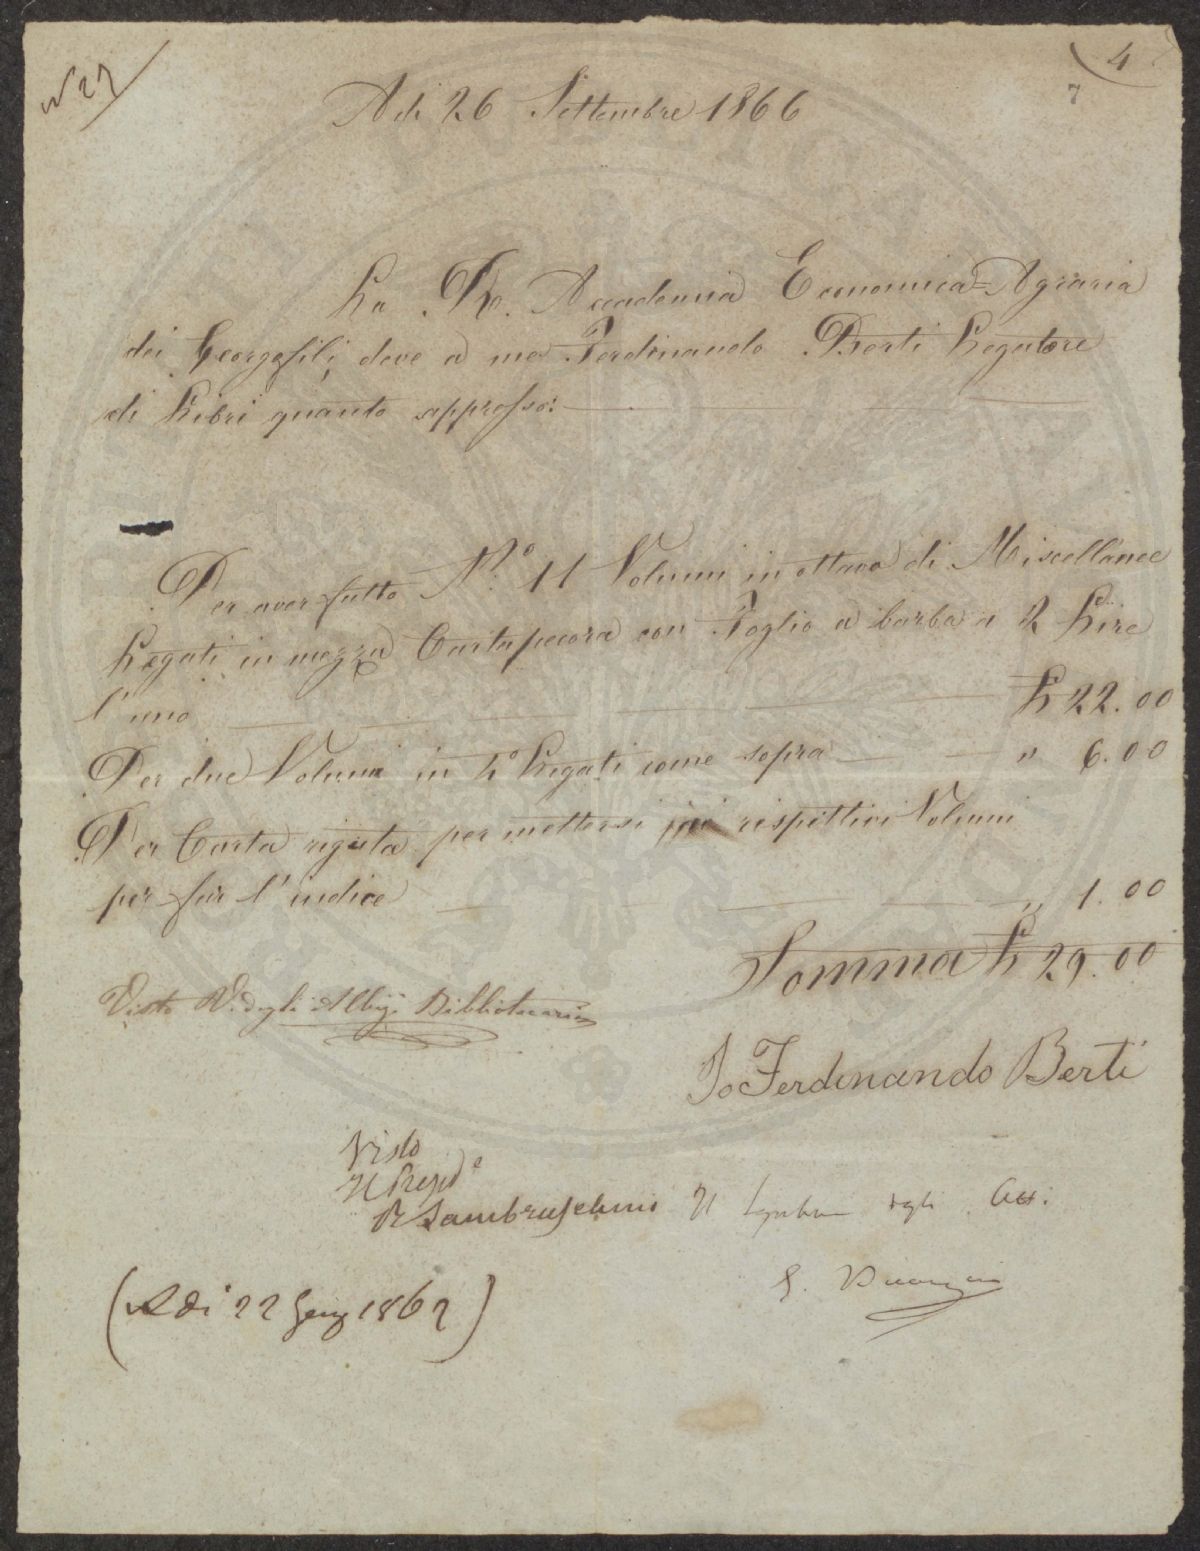 N 27
4
7
A dì 26 Settembre 1866
La R. Accademia Economica=Agraria
dei Georgofili, deve a me Ferdinando Berti Legatore
di Libri quanto appresso:
Per aver fatto N.° 11 Volumi in ottavo di Miscellanee
Legati in mezza Cartapecora con Foglio a barba a 2 Lire
l'uno L 22.00
Per due Volumi in 4° Legati come sopra " 6.00
Per Carta rigata per mettersi nei rispettivi Volumi
per far l'indice " 1.00
Somma L 29.00
Visto V. degli Albizj Bibliotecario
Io Ferdinando Berti
Visto
Il Presid.e
R Lambruschini Il Segretario degli Atti
G.
(A dì 22 Genn 1867)